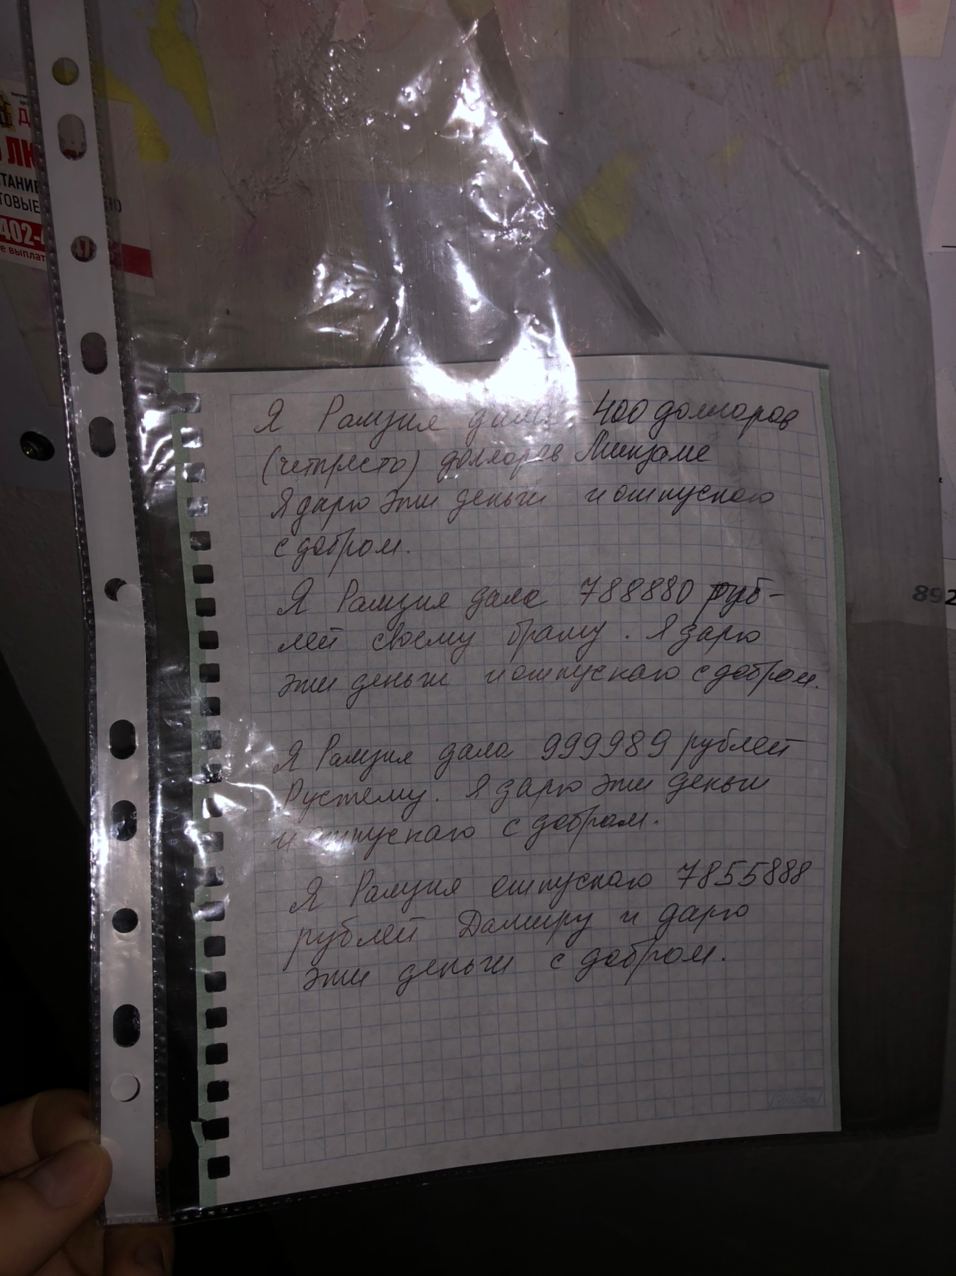 Д
ЛК
ТАНИЕ
ТОВЫЕ
402-
е выплат
Я Рамзия дала 400 долларов
(четыресто) долларов
Я дарю эти деньги и отпускаю
с добром.
Я Рамзия дала 788880 руб-
лей своему брату. Я дарю
эти деньги и отпускаю с добром.
Я Рамзия дала 999989 рублей
Рустему. Я дарю эти деньги
и отпускаю с добром.
Я Рамзия отпускаю 7855888
рублей Дамиру и дарю
эти деньги с добром.
892